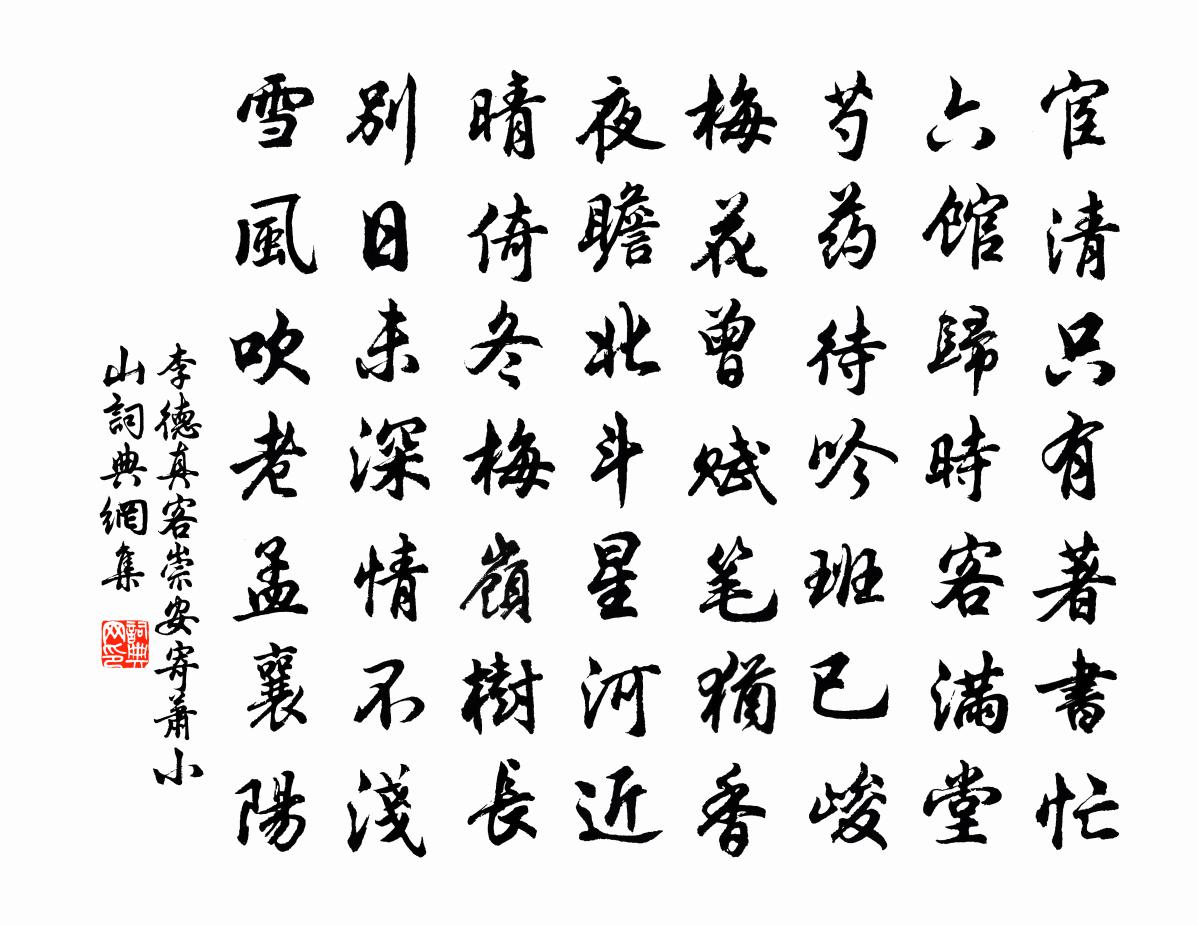 宦清只有著書忙
六館歸時客滿堂
芍药待吟班已峻
梅花曾赋笔猶香
夜瞻北斗星河近
晴倚冬梅嶺樹長
別日未深情不淺
雪風吹老孟襄陽
李德真客崇安寄蕭小
山詞典網集
詞典
网印